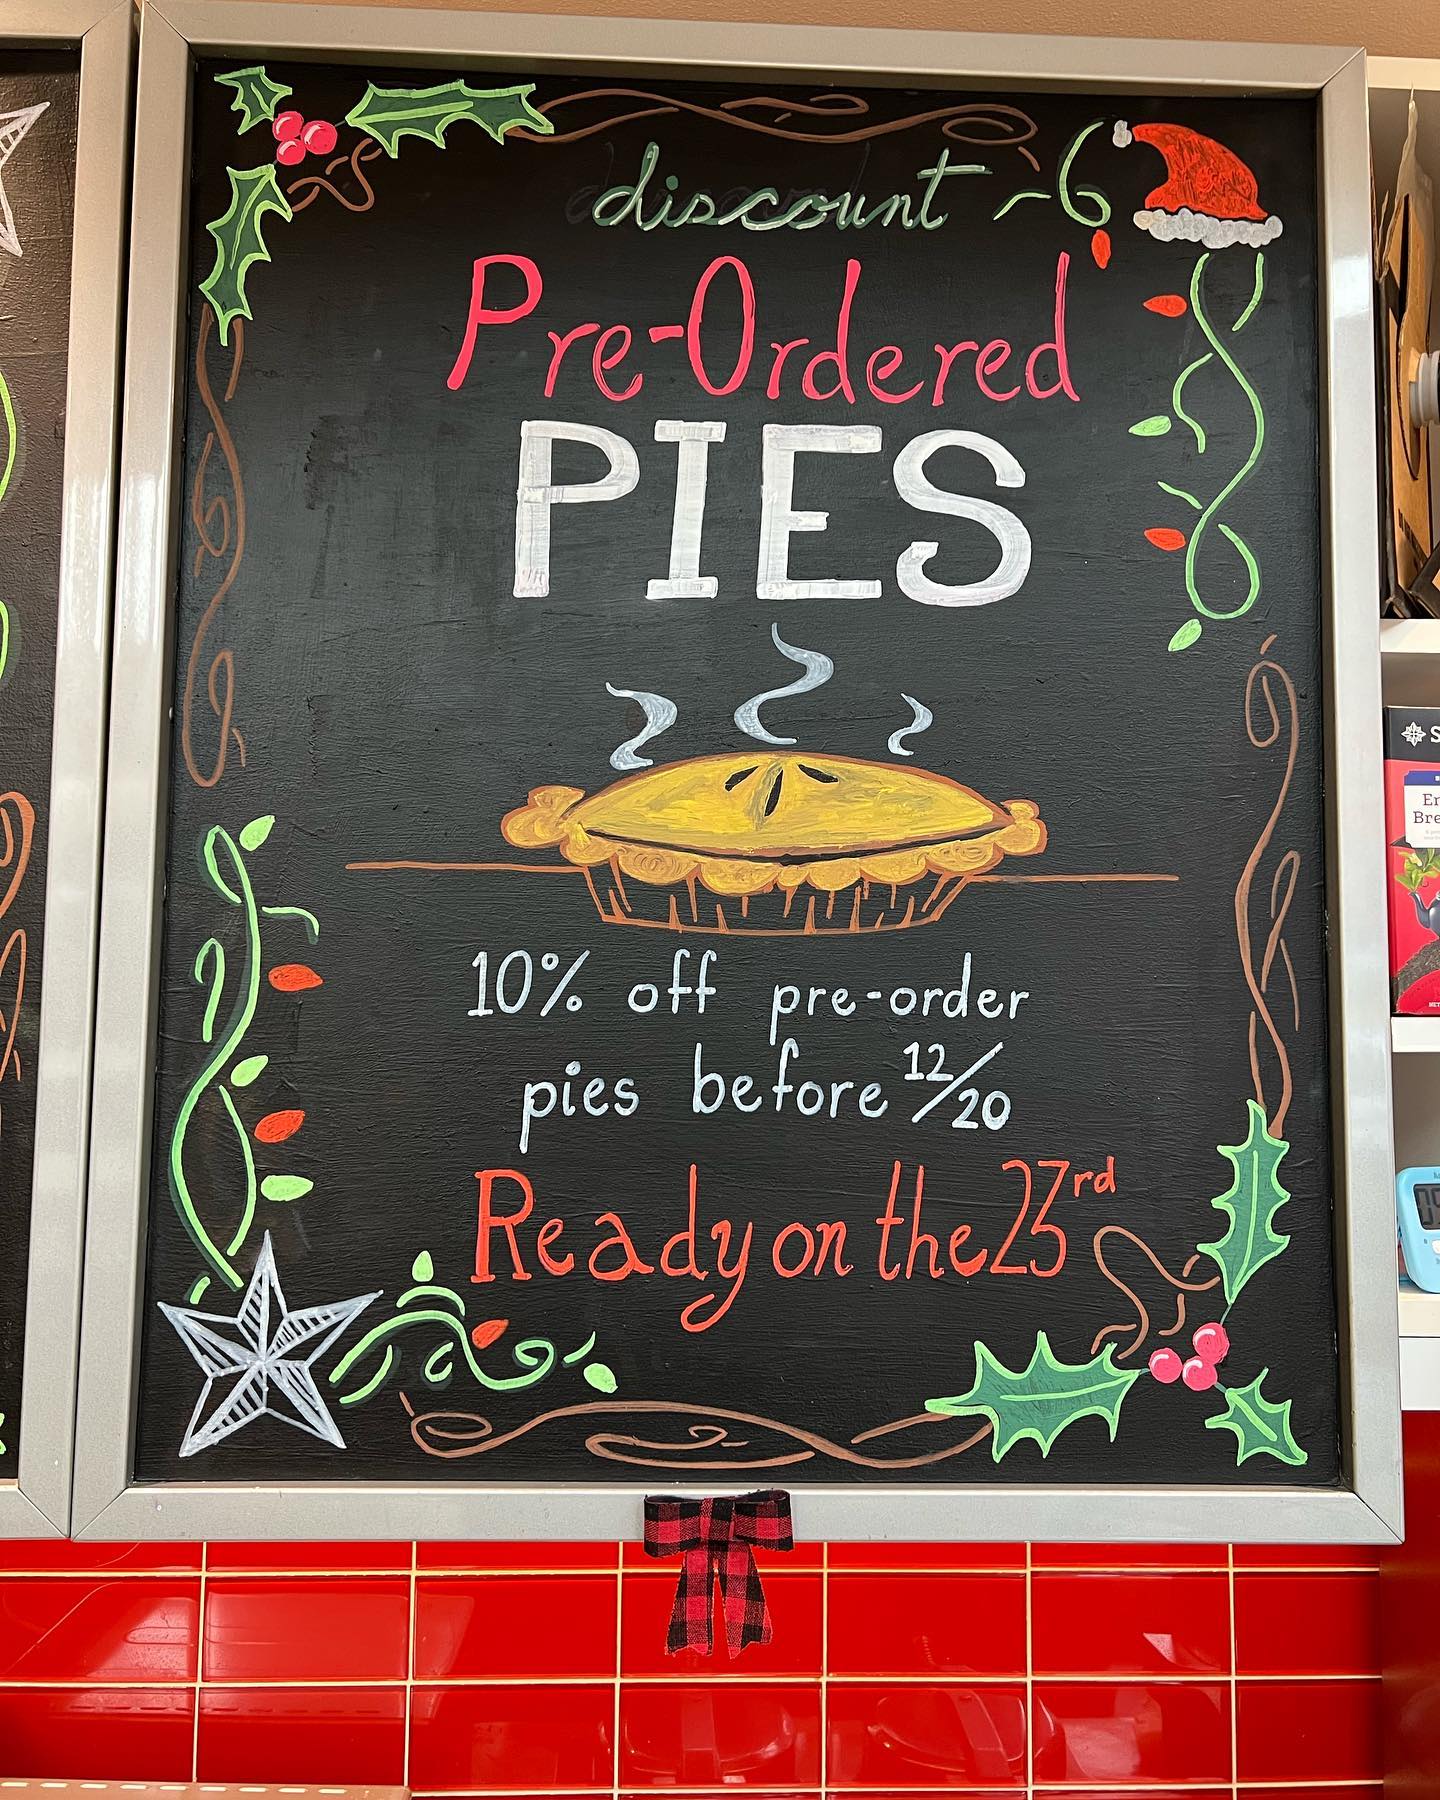 discount
Pre-Ordered
PIES
10% off pre-order
pies before 12/20
Ready on the 23rd